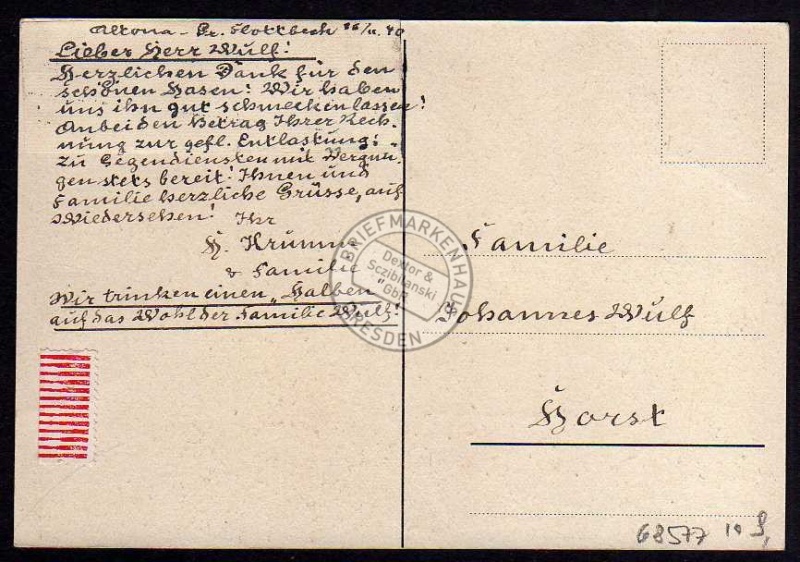 Altona - Gr. Flottbeck 26/11. 40
Lieber Herr Wulf!
Herzlichen Dank für den
schönen Hasen! Wir haben
uns ihn gut schmecken lassen!
Anbei den Betrag Ihrer Rech-
nung zur gefl. Entlastung;
zu Gegendiensten mit Vergnü-
gen stets bereit! Ihnen und
Familie herzliche Grüsse, auf
Wiedersehen!
Ihr
H. Krumm
& Familie
Wir trinken einen „Halben"
auf das Wohl der Familie Wulf!
Familie
Johannes Wulf
Horst
BRIEFMARKENHAUS
Dektor &
Sczibilanski
GbR
DRESDEN
68577 10